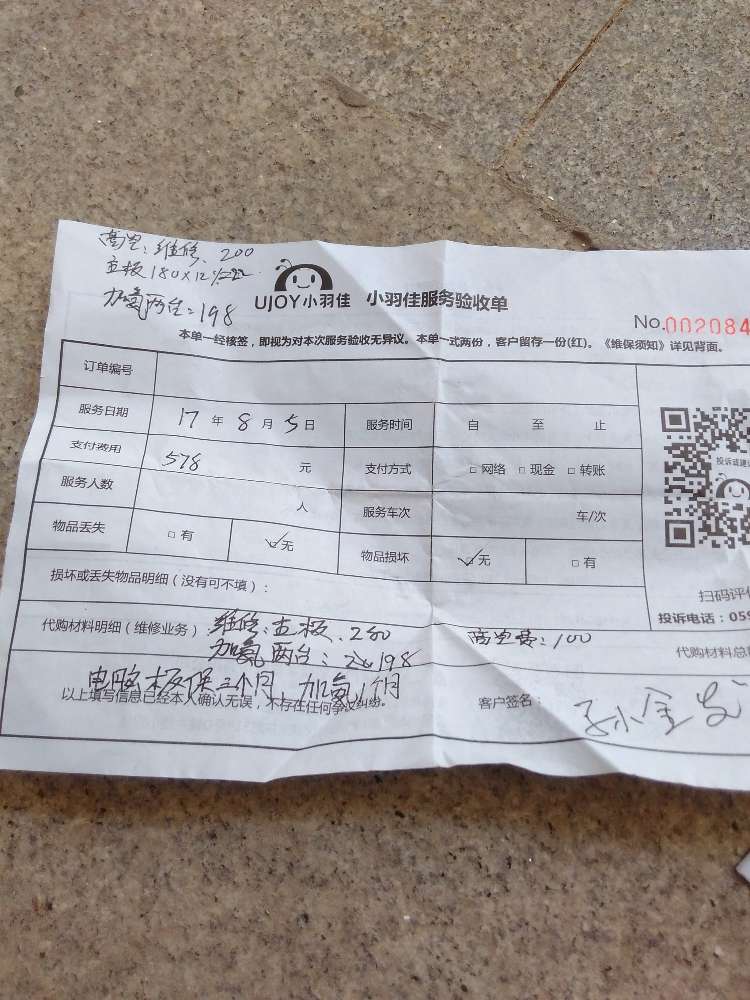 高空:维修、200
主板180×12
加氨两台:198
UJOY小羽佳 小羽佳服务验收单
No.002084
本单一经核签,即视为对本次服务验收无异议。本单一式两份,客户留存一份(红)。《维保须知》详见背面。
订单编号
服务日期 17 年 8 月 5 日 服务时间 自 至 止
支付费用 578 元 支付方式 □网络 □现金 □转账
服务人数 人 服务车次 车/次
物品丢失 □有 ☑无 物品损坏 ☑无 □有
投诉或建
扫码评价
投诉电话:059
损坏或丢失物品明细(没有可不填):
代购材料明细(维修业务) 维修:主板、280 高空费:100
加氨两台:198
代购材料总
电脑板保三个月 加氨1个月
以上填写信息已经本人确认无误,不存在任何争议纠纷。 客户签名: